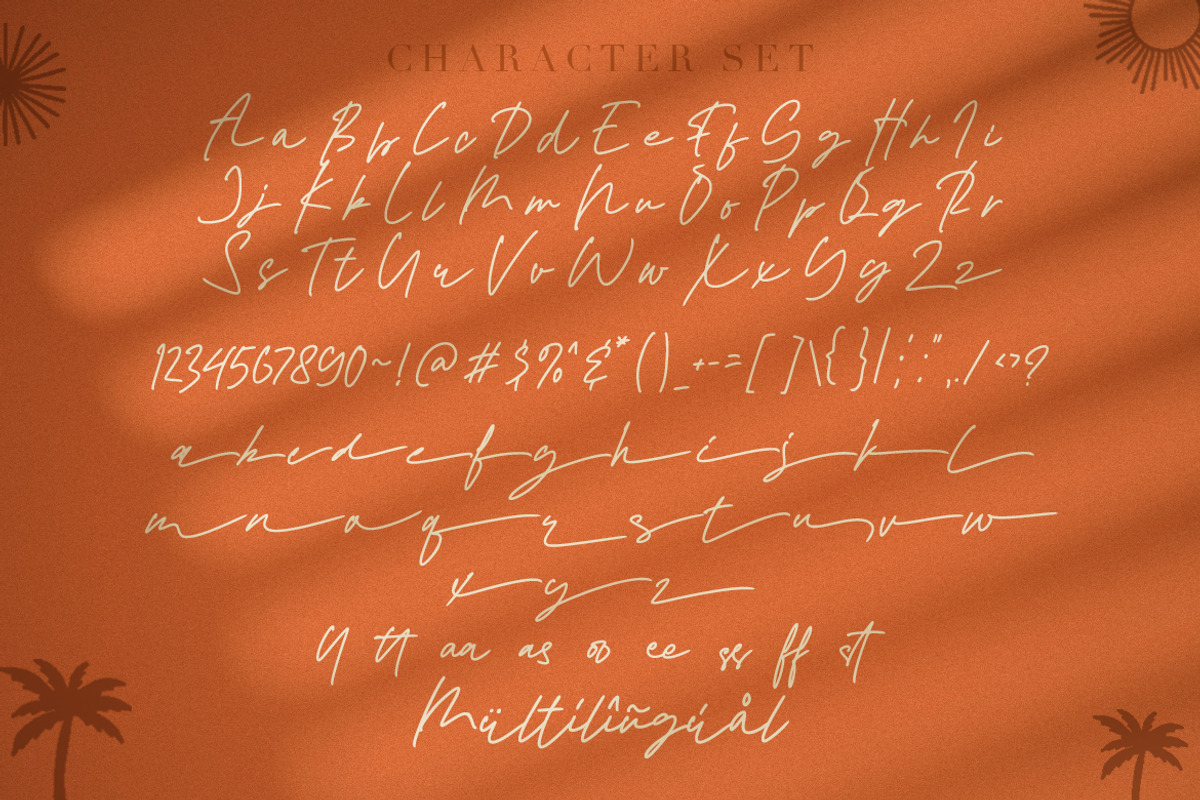 CHARACTER SET
A a B b C c D d E e F f G g H h I i
J j K k L l M m N n O o P p Q q R r
S s T t U u V v W w X x Y y Z z
1234567890~!@#$%^&*()_+-=[]\{}|;':",./<>?
a b c d e f g h i j k l
m n o q r s t u v w
x y z
tt aa as oo ee ss ff st
Mültílîñgúål